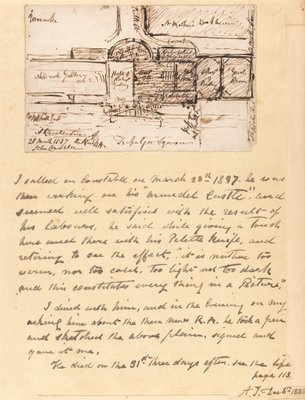 St Martins Workhouse
National Gallery
Hall of
A Recollection of
28 March 1837 the New R.A.
John Constable
Trafalgar Square
I called on Constable on March 28th 1837. he was
then working on his "Arundel Castle", and
seemed well satisfied with the result of
his labours, he said while giving a touch
here and there with his Palette Knife, and
retiring to see the effect: it is neither too
warm, nor too cold, too light nor too dark
and this constitutes every thing in a Picture".
I dined with him, and in the Evening on my
asking him about the then new R.A. he took a pen
and sketched the above plan, signed and
gave it me.
He died on the 31st three days after. see the life
page 113.